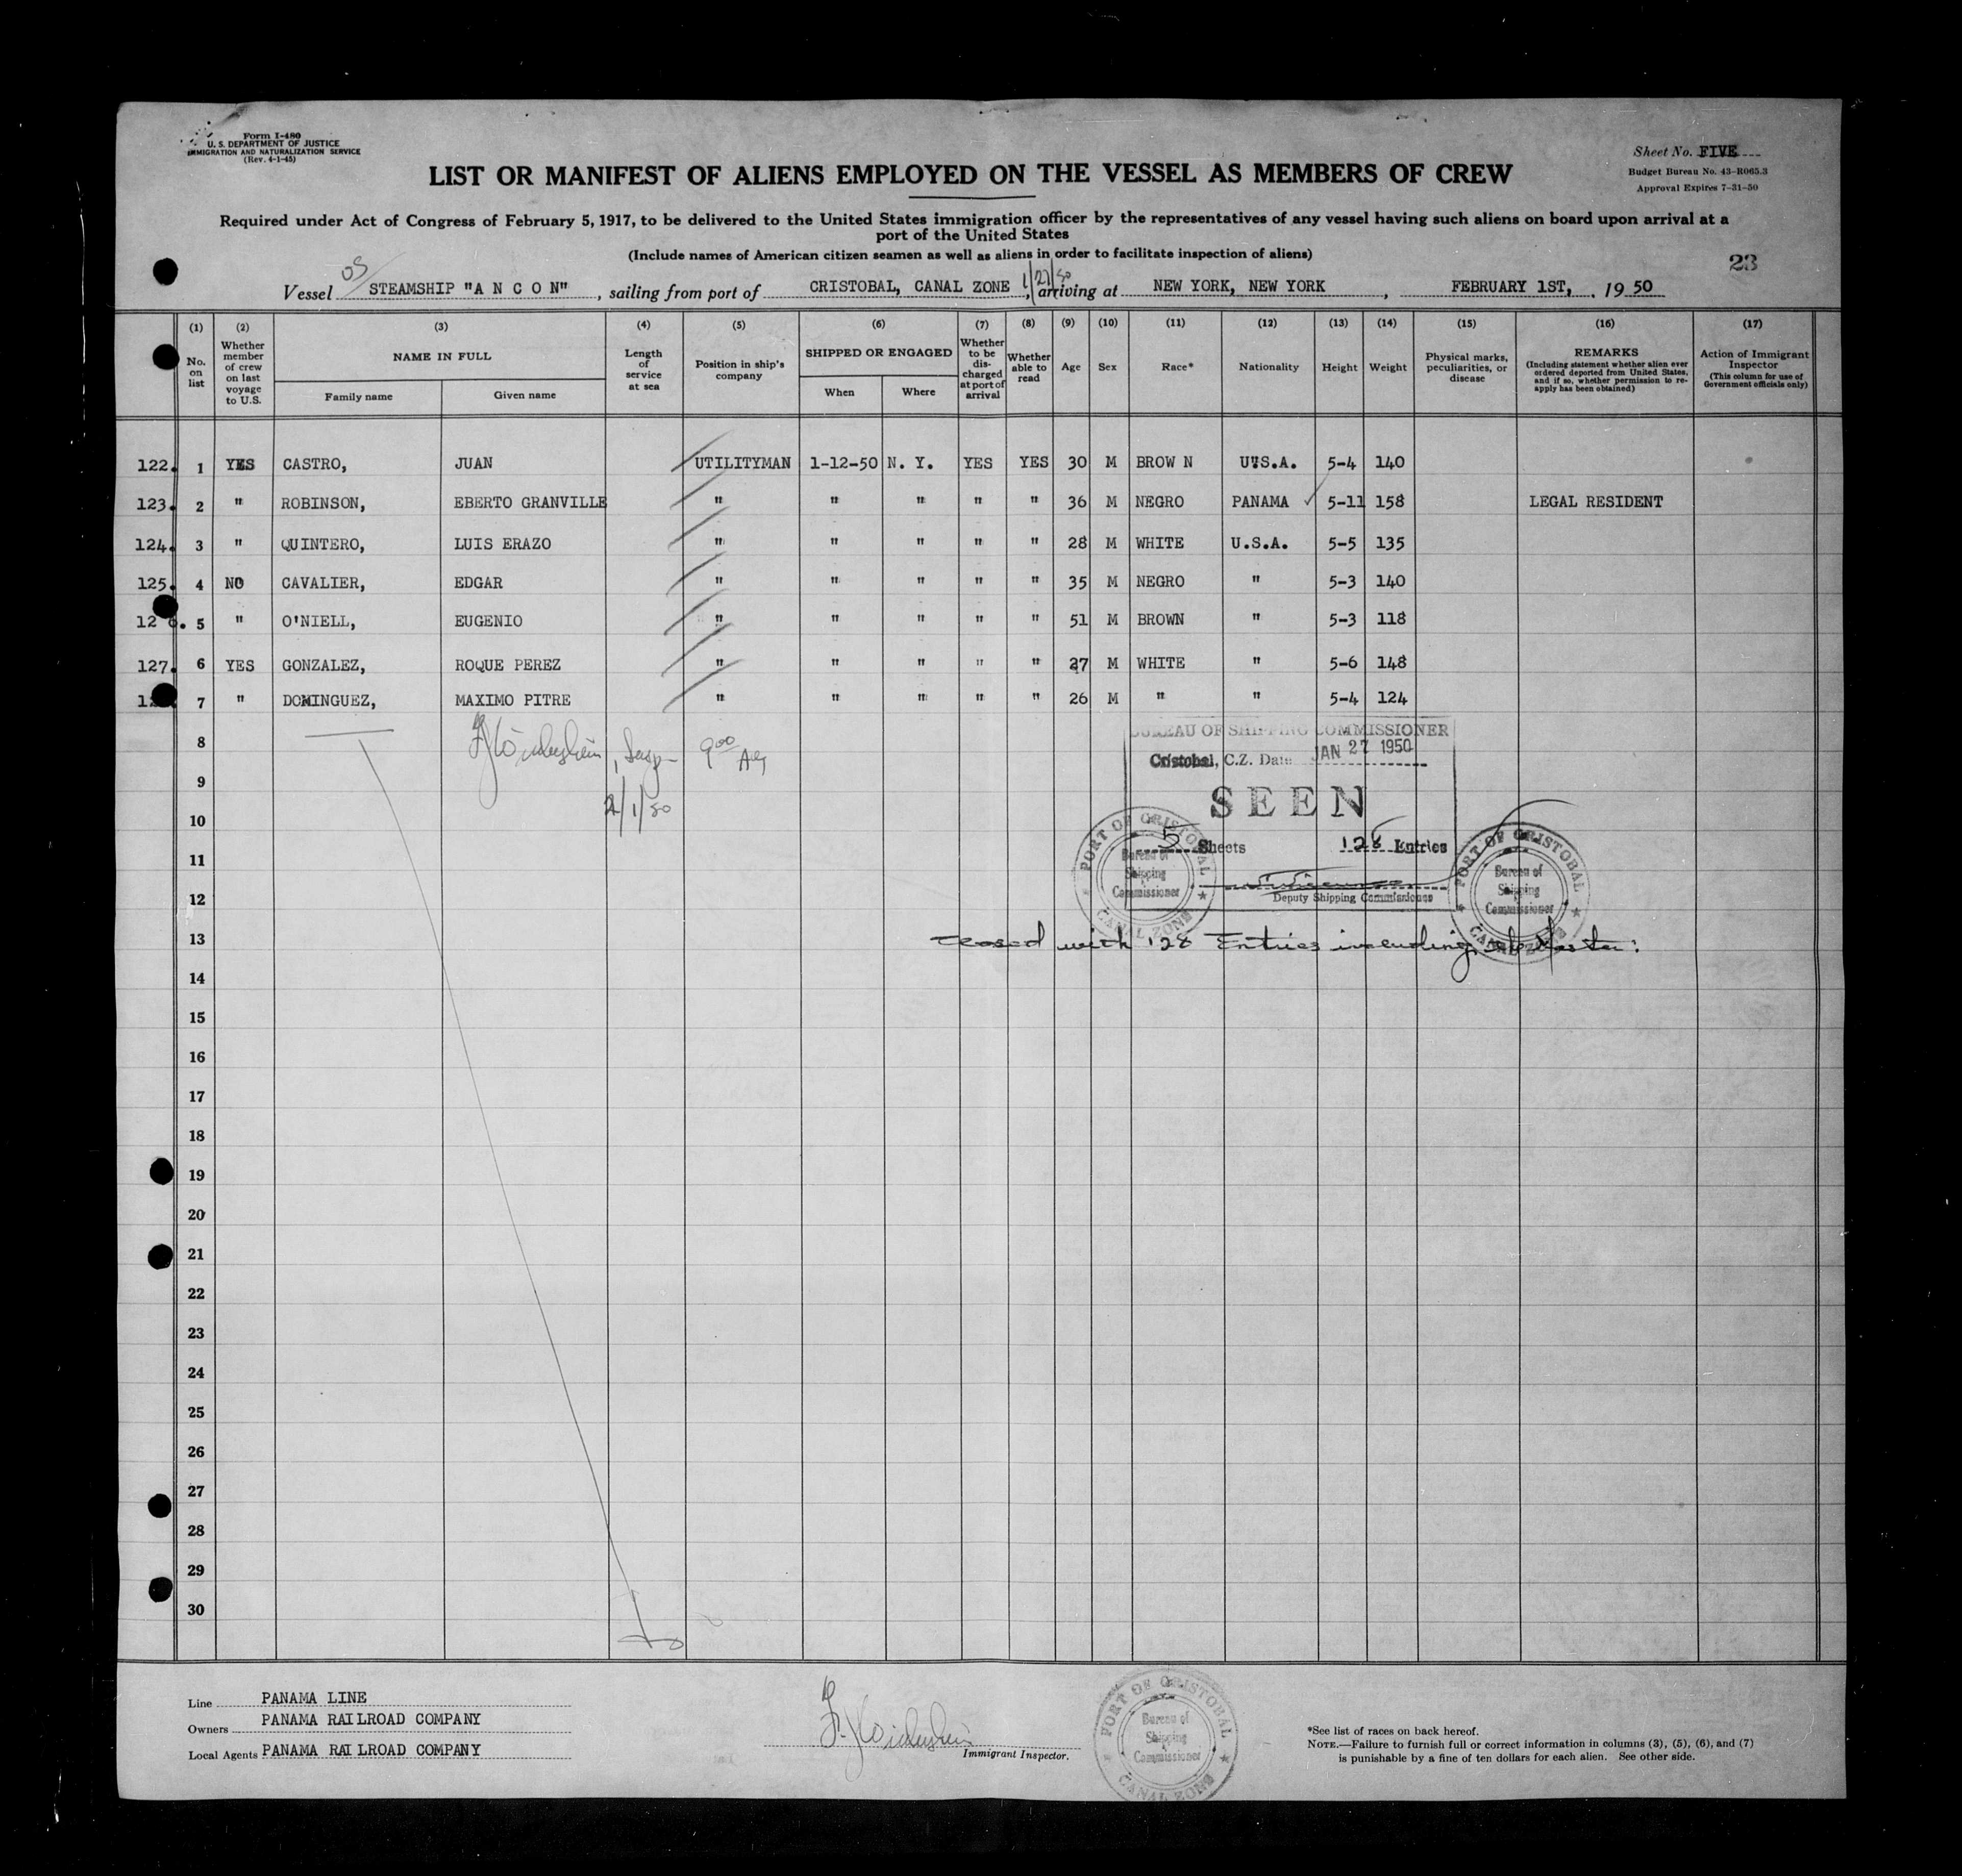 Form I-480
U. S. DEPARTMENT OF JUSTICE
IMMIGRATION AND NATURALIZATION SERVICE
(Rev. 4-1-45)
Sheet No. FIVE
Budget Bureau No. 43-R065.3
Approval Expires 7-31-50
LIST OR MANIFEST OF ALIENS EMPLOYED ON THE VESSEL AS MEMBERS OF CREW
Required under Act of Congress of February 5, 1917, to be delivered to the United States immigration officer by the representatives of any vessel having such aliens on board upon arrival at a
port of the United States
(Include names of American citizen seamen as well as aliens in order to facilitate inspection of aliens)
23
Vessel STEAMSHIP "A N C O N", sailing from port of CRISTOBAL, CANAL ZONE 1/27/50, arriving at NEW YORK, NEW YORK, FEBRUARY 1ST, 1950
(1) No. on list (2) Whether member of crew on last voyage to U.S. (3) NAME IN FULL Family name Given name (4) Length of service at sea (5) Position in ship's company (6) SHIPPED OR ENGAGED When Where (7) Whether to be discharged at port of arrival (8) Whether able to read (9) Age (10) Sex (11) Race* (12) Nationality (13) Height (14) Weight (15) Physical marks, peculiarities, or disease (16) REMARKS (Including statement whether alien ever ordered deported from United States, and if so, whether permission to re-apply has been obtained) (17) Action of Immigrant Inspector (This column for use of Government officials only)
122. 1 YES CASTRO, JUAN UTILITYMAN 1-12-50 N. Y. YES YES 30 M BROW N U.S.A. 5-4 140
123. 2 " ROBINSON, EBERTO GRANVILLE " " " " " 36 M NEGRO PANAMA ✓ 5-11 158 LEGAL RESIDENT
124. 3 " QUINTERO, LUIS ERAZO " " " " " 28 M WHITE U.S.A. 5-5 135
125. 4 NO CAVALIER, EDGAR " " " " " 35 M NEGRO " 5-3 140
12 . 5 " O'NIELL, EUGENIO " " " " " 51 M BROWN " 5-3 118
127. 6 YES GONZALEZ, ROQUE PEREZ " " " " " 27 M WHITE " 5-6 148
12 7 " DOMINGUEZ, MAXIMO PITRE " " " " " 26 M " " 5-4 124
8 9 00
2/1/50
BUREAU OF SHIPPING COMMISSIONER
Cristobal, C.Z. Date JAN 27 1950
9
SEEN
10
5 Sheets 128 Entries
11
PORT OF CRISTOBAL
Bureau of
Shipping
Commissioner
CANAL ZONE
Deputy Shipping Commissioner
PORT OF CRISTOBAL
Bureau of
Shipping
Commissioner
CANAL ZONE
12
13 Closed with 128 Entries including Master:
14
15
16
17
18
19
20
21
22
23
24
25
26
27
28
29
30
Line PANAMA LINE
Owners PANAMA RAILROAD COMPANY
Local Agents PANAMA RAILROAD COMPANY
Immigrant Inspector.
PORT OF CRISTOBAL
Bureau of
Shipping
Commissioner
CANAL ZONE
*See list of races on back hereof.
NOTE.—Failure to furnish full or correct information in columns (3), (5), (6), and (7)
is punishable by a fine of ten dollars for each alien. See other side.